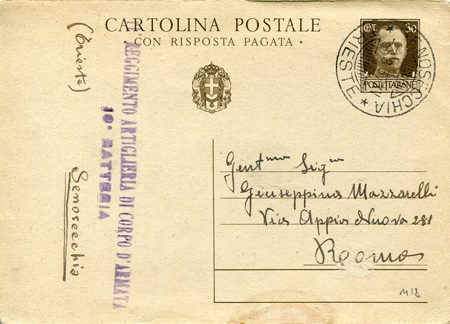 CARTOLINA POSTALE
CON RISPOSTA PAGATA
CT. 30
POSTE ITALIANE
TRIESTE
REGGIMENTO ARTIGLIERIA DI CORPO D'ARMATA
10ª BATTERIA
(Trieste)
Senosecchia
Gent.ma Sig.na
Giuseppina Mazzarelli
Via Appia Nuova 281
Roma